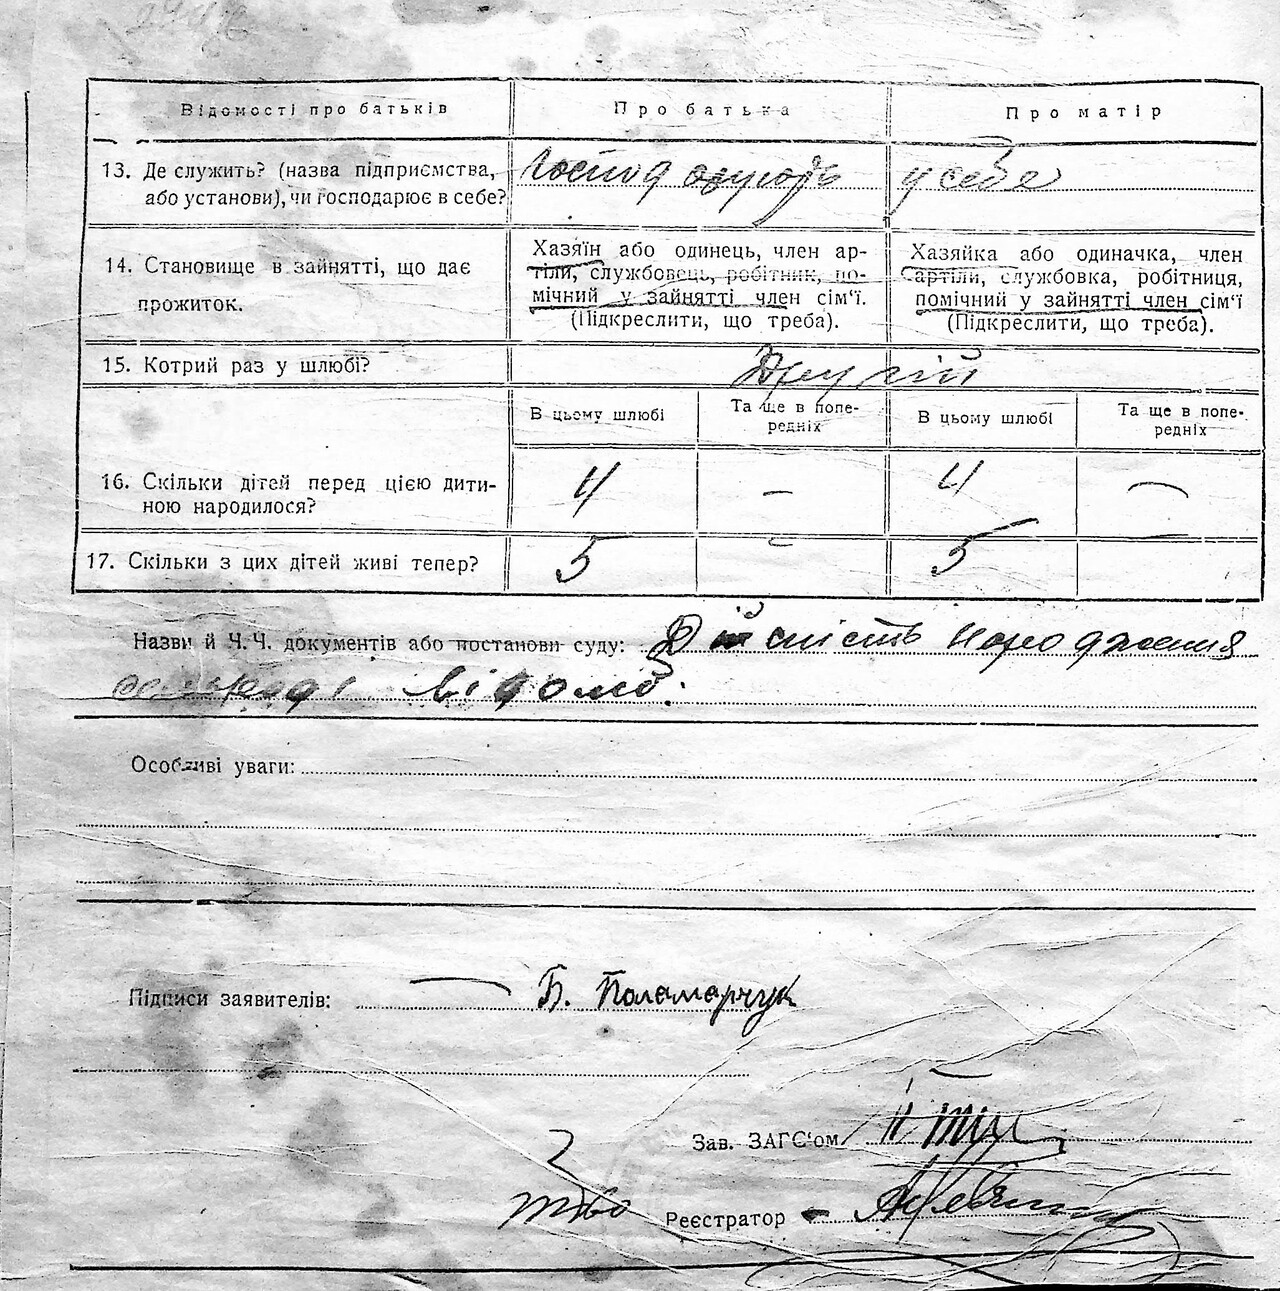 Відомості про батьків
Про батька
Про матір
13. Де служить? (назва підприємства,
або установи), чи господарює в себе?
Господарують у себе
14. Становище в зайнятті, що дає
прожиток.
Хазяїн або одинець, член ар-
тіли, службовець, робітник, по-
мічний у зайнятті член сім'ї.
(Підкреслити, що треба).
Хазяйка або одиначка, член
артіли, службовка, робітниця,
помічний у зайнятті член сім'ї
(Підкреслити, що треба).
15. Котрий раз у шлюбі?
Другий
В цьому шлюбі
Та ще в попе-
редніх
В цьому шлюбі
Та ще в попе-
редніх
16. Скільки дітей перед цією дити-
ною народилося?
4 – 4 –
17. Скільки з цих дітей живі тепер?
5 – 5 –
Назви й Ч.Ч. документів або постанови суду: Дійсність народження
сельраді відомо.
Особливі уваги:
Підписи заявителів: — Б. Паламарчук
Зав. ЗАГС'ом
Реєстратор